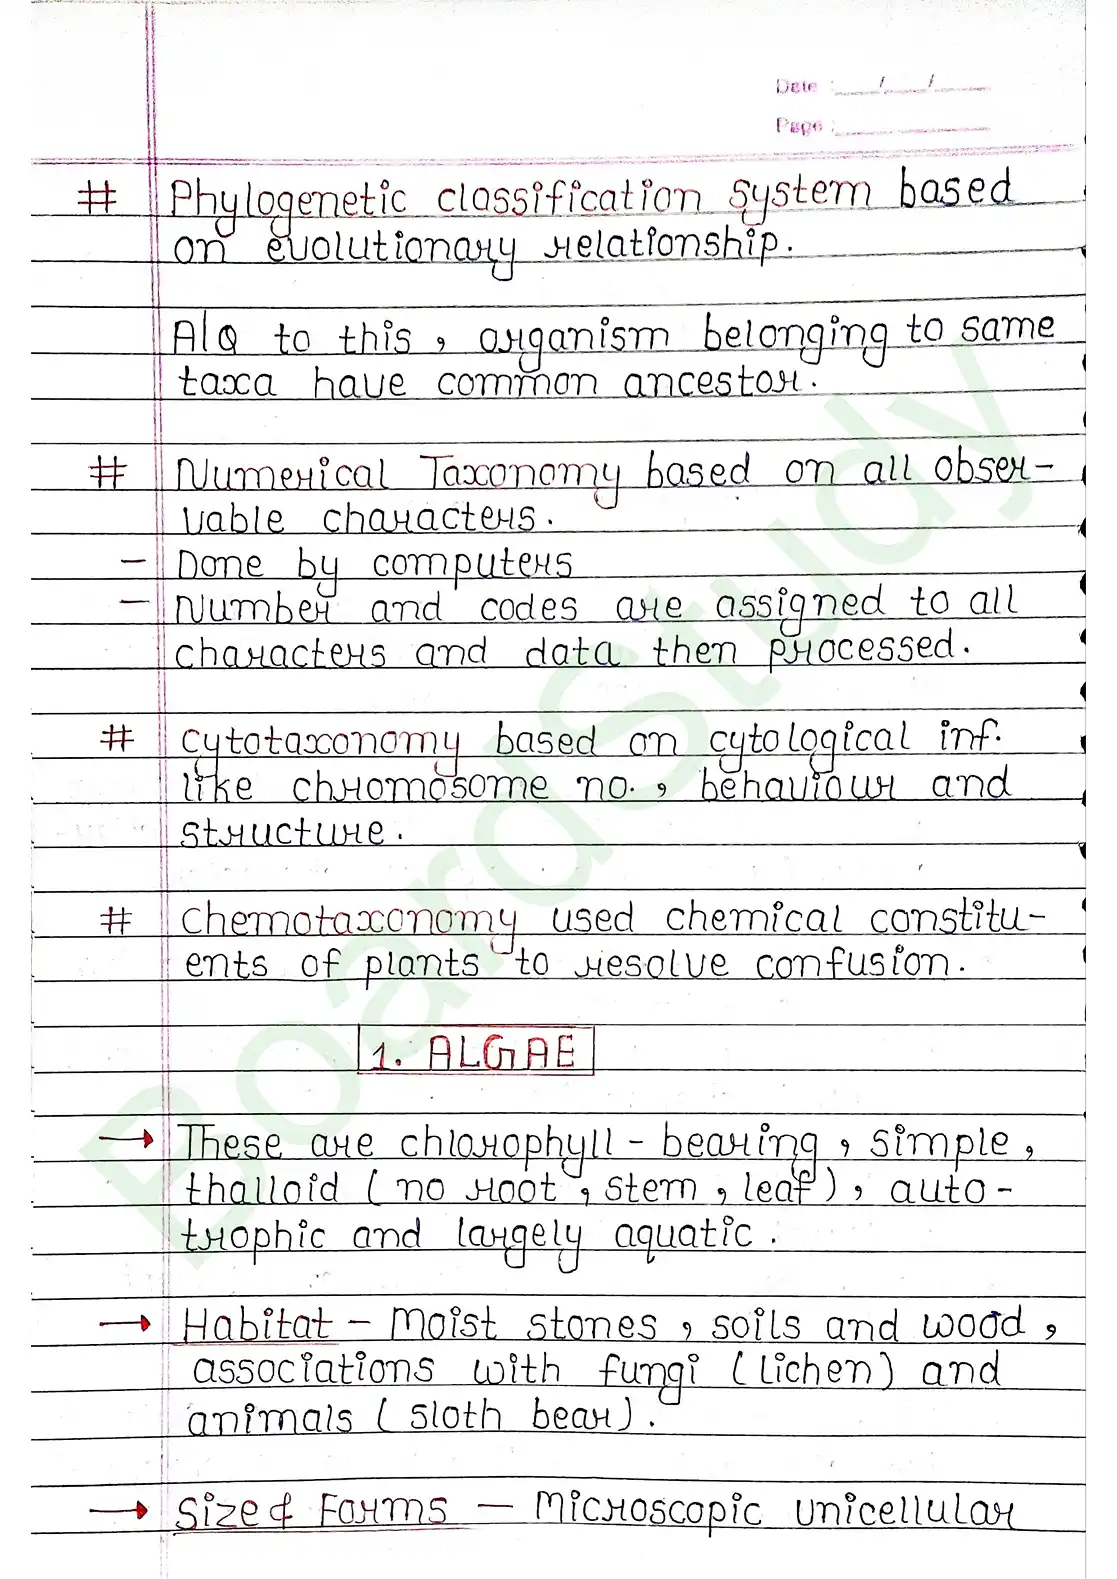 Date : / /
Page :
# Phylogenetic classification system based
on evolutionary relationship.
A/Q to this, organism belonging to same
taxa have common ancestor.
# Numerical Taxonomy based on all obser-
vable characters.
- Done by computers
- Number and codes are assigned to all
characters and data then processed.
# Cytotaxonomy based on cytological inf.
like chromosome no., behaviour and
structure.
# Chemotaxonomy used chemical constitu-
ents of plants to resolve confusion.
1. ALGAE
→ These are chlorophyll - bearing, simple,
thalloid (no root, stem, leaf), auto-
trophic and largely aquatic.
→ Habitat - Moist stones, soils and wood,
associations with fungi (lichen) and
animals (sloth bear).
→ Size & Forms - Microscopic unicellular
BoardStudy